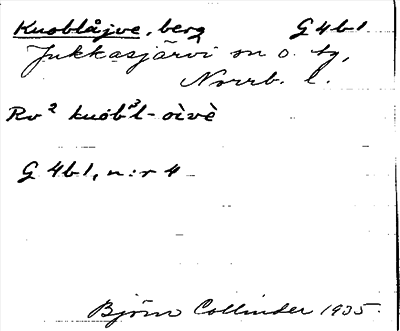 Kuoblåjve, berg G4b1.
Jukkasjärvi sn o. tg,
Norrb. l.
Rv² kuob³l-oìvè
G 4b1, n:r 4
Björn Collinder 1935.